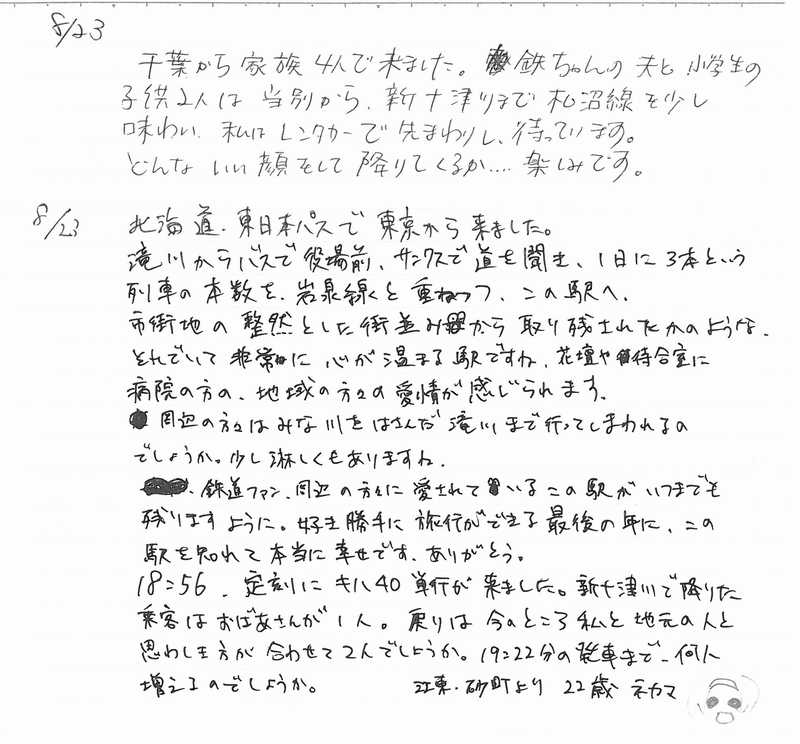 8/23
千葉から家族4人で来ました。鉄ちゃんの夫と小学生の
子供2人は当別から、新十津川まで札沼線を少し
味わい、私はレンタカーで先まわりし、待っています。
どんないい顔をして降りてくるか.... 楽しみです。
8/23
北海道・東日本パスで東京から来ました。
滝川からバスで役場前、サンクスで道を聞き、1日に3本という
列車の本数を、岩泉線と重ねつつ、この駅へ。
市街地の整然とした街並みから取り残されたかのような、
それでいて非常に心が温まる駅ですね、花壇や待合室に
病院の方の、地域の方々の愛情が感じられます。
周辺の方々はみな川をはさんだ滝川まで行ってしまわれるの
でしょうか。少し淋しくもありますね。
鉄道ファン、周辺の方々に愛されているこの駅がいつまでも
残りますように。好き勝手に旅行ができる最後の年に、この
駅を知れて本当に幸せです、ありがとう。
18:56、定刻にキハ40単行が来ました。新十津川で降りた
乗客はおばあさんが1人。戻りは今のところ私と地元の人と
思わしき方が合わせて2人でしょうか。19:22分の発車まで、何人
増えるのでしょうか。
江東・砂町より 22歳 ネカマ